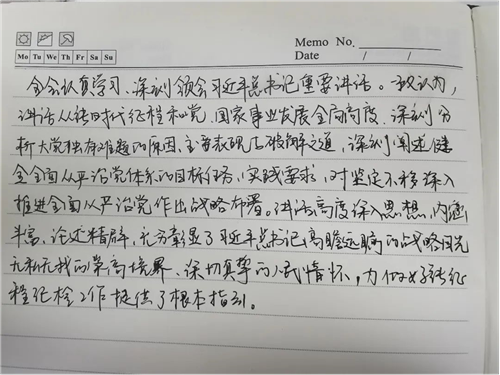 Memo No.
Mo Tu We Th Fr Sa Su
Date / /
全会认真学习、深刻领会习近平总书记重要讲话。一致认为,
讲话从新时代征程和党、国家事业发展全局高度、深刻分
析大党独有难题的原因、主要表现及破解之道，深刻阐述健
全全面从严治党体系的目标任务、实践要求，对坚定不移深入
推进全面从严治党作出战略部署。讲话高度深入思想、内涵
丰富、论述精辟，充分彰显了习近平总书记高瞻远瞩的战略目光
无私无我的崇高境界、深切真挚的人民情怀，为做好新征
程纪检工作提供了根本指引。